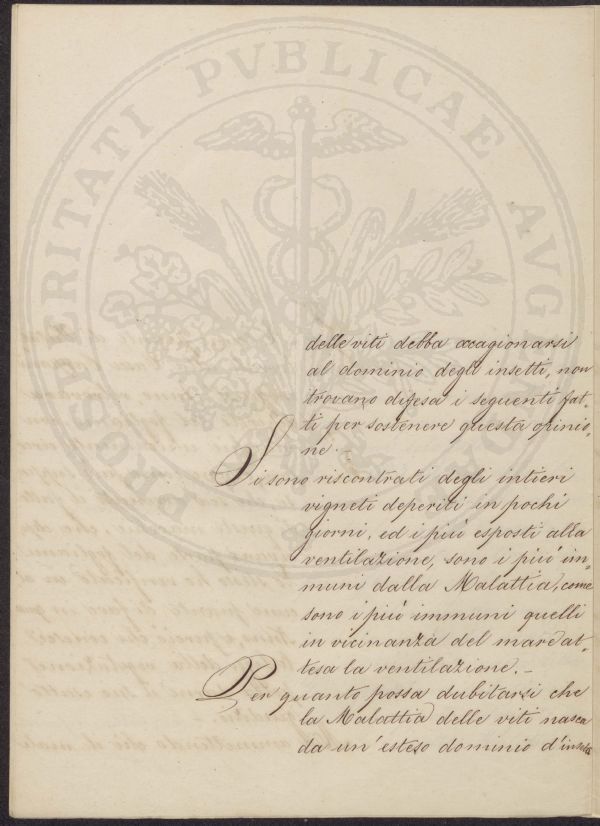 PROSPERITATI PVBLICAE AVGENDAE
delle viti debba accagionarsi
al dominio degli insetti, non
trovano difesa i seguenti fat-
ti per sostenere questa opinio-
ne. -
Si sono riscontrati degli intieri
vigneti deperiti in pochi
giorni, ed i più esposti alla
ventilazione, sono i più im-
muni dalla Malattia, come
sono i più immuni quelli
in vicinanza del mare at-
tesa la ventilazione. -
Per quanto possa dubitarsi che
la Malattia delle viti nasca
da un' esteso dominio d'insetti